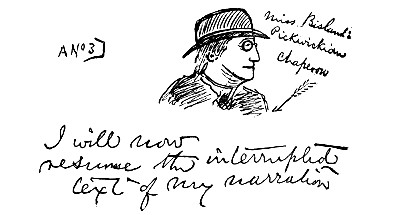 A No 3
Miss Bisland's
Pickwickian
Chaperon
I will now
resume the interrupted
text of my narration